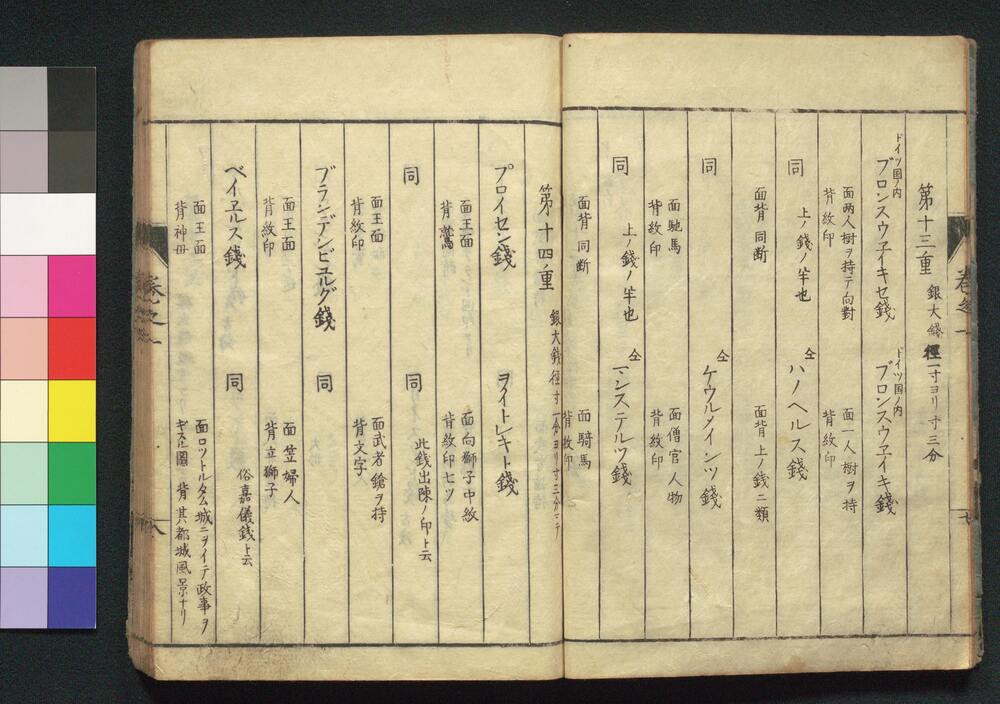 第十三重 銀大錢 徑一寸ヨリ寸三分
ドイツ国ノ内
ブロンスウヱイキセ錢
面両人樹ヲ持テ向對
背紋印
ドイツ国ノ内
ブロンスウヱイキ錢
面一人樹ヲ持
背紋印
同
上ノ錢ノ半也
面背同断
仝
ハノヘルス錢
面背上ノ錢ニ類
同
面馳馬
背紋印
仝
ケウルメインツ錢
面僧官人物
背紋印
同
上ノ錢ノ半也
面背同断
仝
マンステルツ錢
面騎馬
背紋印
卷之一
七
第十四重 銀大錢徑寸一分ヨリ寸三分マテ
プロイセン錢
面王面
背鷲
ヲイトレキト錢
面向獅子中紋
背紋印七ツ
同
面王面
背紋印
同
此錢出陳ノ印ト云
面武者鎗ヲ持
背文字
ブランデンビュルグ錢
面王面
背紋印
同
面笠婦人
背立獅子
ベイヱルス錢
面王面
背神毋
同
俗嘉儀錢ト云
面ロツトルタム城ニヲイテ政事ヲ
ギス正圖 背其都城風景ナリ
卷之一
八